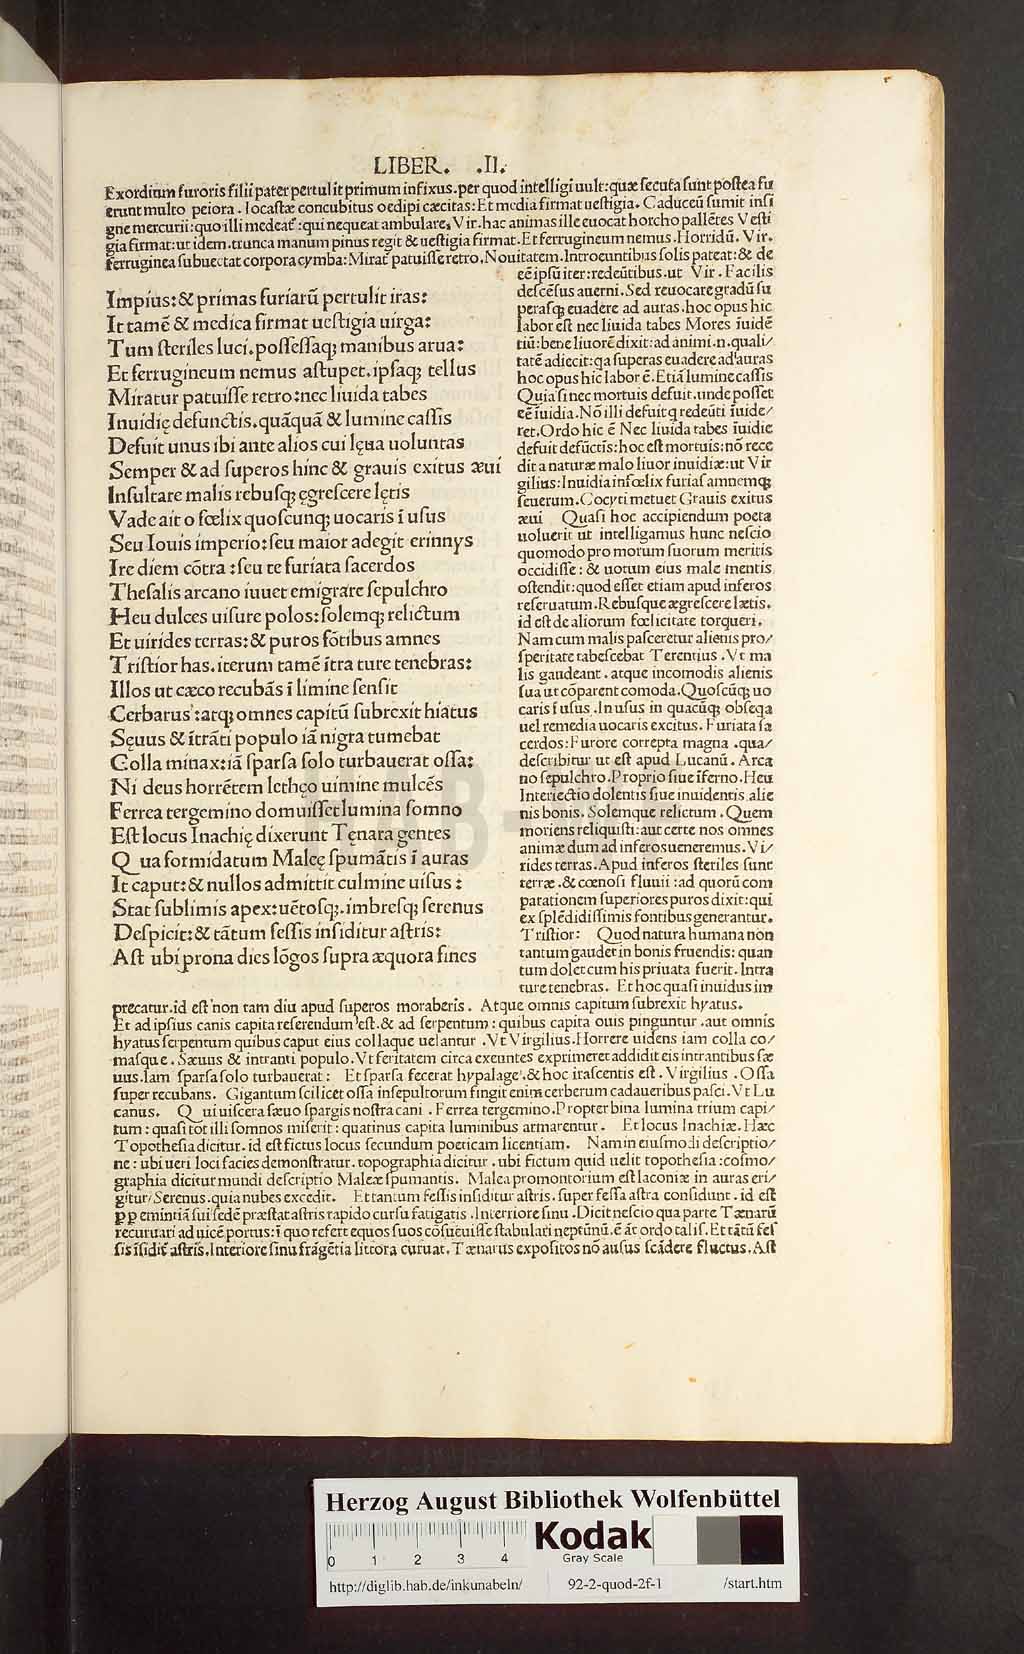 LIBER. .II.
Exordium furoris filii pater pertulit primum infixus.per quod intelligi uult:quæ secuta sunt postea fu
erunt multo peiora. Iocastæ concubitus oedipi cæcitas: Et media firmat uestigia. Caduceũ sumit insi
gne mercurii:quo illi medeat̃ :qui nequeat ambulare, Vir. hac animas ille euocat horcho pallẽtes Vesti
gia firmat:ut idem.trunca manum pinus regit & uestigia firmat. Et ferrugineum nemus .Horridũ. Vir.
ferruginea subuectat corpora cymba: Mirat̃ patuisse retro. Nouitatem. Introeuntibus solis pateat:& de
Impius:& primas furiarũ pertulit iras:
It tamẽ & medica firmat uestigia uirga:
Tum steriles luci.possessaq; manibus arua:
Et ferrugineum nemus astupet.ipsaq; tellus
Miratur patuisse retro:nec liuida tabes
Inuidię defunctis.quãquã & lumine cassis
Defuit unus ibi ante alios cui lęua uoluntas
Semper & ad superos hinc & grauis exitus æui
Insultare malis rebusq; ęgrescere lętis
Vade ait o fœlix quoscunq; uocaris ĩ usus
Seu Iouis imperio:seu maior adegit erinnys
Ire diem cõtra :seu te furiata sacerdos
Thesalis arcano iuuet emigrare sepulchro
Heu dulces uisure polos:solemq; relictum
Et uirides terras:& puros fõtibus amnes
Tristior has.iterum tamẽ ĩtra ture tenebras:
Illos ut cæco recubãs ĩ limine sensit
Cerbarus :atq; omnes capitũ subrexit hiatus
Sęuus & ĩtrãti populo iã nigra tumebat
Colla minax:iã sparsa solo turbauerat ossa:
Ni deus horrẽtem lethęo uimine mulcẽs
Ferrea tergemino domuisset lumina somno
Est locus Inachię dixerunt Tęnara gentes
Qua formidatum Malęę spumãtis ĩ auras
It caput:& nullos admittit culmine uisus :
Stat sublimis apex:uẽtosq;.imbresq; serenus
Despicit:& tãtum fessis insiditur astris:
Ast ubi prona dies lõgos supra æquora fines
eẽ ipsũ iter:redeũtibus.ut Vir. Facilis
descẽsus auerni. Sed reuocare gradũ su
perasq; euadere ad auras.hoc opus hic
labor est nec liuida tabes Mores ĩuidẽ
tiũ:bene liuorẽ dixit:ad animi.n.quali/
tatẽ adiecit:qa superas euadere ad auras
hoc opus hic labor ẽ. Etiã lumine cassis
Quasi nec mortuis defuit.unde posset
eẽ ĩuidia. Nõ illi defuit q redeũti ĩuide/
ret. Ordo hic ẽ Nec liuida tabes ĩuidie
defuit defũctis:hoc est mortuis:nõ rece
dit a naturæ malo liuor inuidiæ:ut Vir
gilius:Inuidia infœlix furias amnemq;
seuerum. Cocyti metuet Grauis exitus
æui Quasi hoc accipiendum poeta
uoluerit ut intelligamus hunc nescio
quomodo pro morum suorum meritis
occidisse : & uotum eius male mentis
ostendit:quod esset etiam apud inferos
reseruatum. Rebusque ægrescere lætis.
id est de aliorum fœlicitate torqueri.
Nam cum malis pasceretur alienis pro/
speritate tabescebat Terentius . Vt ma
lis gaudeant . atque incomodis alienis
sua ut cõparent comoda. Quoscũq; uo
caris ĩ usus. In usus in quacũq; obseqa
uel remedia uocaris excitus. Furiata sa
cerdos: Furore correpta magna .qua/
describitur ut est apud Lucanũ. Arca
no sepulchro. Proprio siue ĩferno. Heu
Interiectio dolentis siue inuidentis alie
nis bonis. Solemque relictum . Quem
moriens reliquisti: aut certe nos omnes
animæ dum ad inferos ueneremus. Vi/
rides terras. Apud inferos steriles sunt
terræ .& cœnosi fluuii :ad quorũ com
parationem superiores puros dixit:qui
ex splẽdidissimis fontibus generantur.
Tristior: Quod natura humana non
tantum gaudet in bonis fruendis: quan
tum dolet cum his priuata fuerit. Intra
ture tenebras. Et hoc quasi inuidus im
precatur.id est non tam diu apud superos moraberis. Atque omnis capitum subrexit hyatus.
Et ad ipsius canis capita referendum est.& ad serpentum: quibus capita ouis pinguntur .aut omnis
hyatus serpentum quibus caput eius collaque uelantur .Vt Virgilius. Horrere uidens iam colla co/
masque. Sæuus & intranti populo. Vt feritatem circa exeuntes exprimeret addidit eis intrantibus sæ
uus. Iam sparsa solo turbauerat : Et sparsa fecerat hypalage.& hoc irascentis est . Virgilius .Ossa
super recubans. Gigantum scilicet ossa insepultorum fingit enim cerberum cadaueribus pasci. Vt Lu
canus. Qui uiscera sæuo spargis nostra cani . Ferrea tergemino. Propter bina lumina trium capi/
tum: quasi tot illi somnos miserit: quatinus capita luminibus armarentur. Et locus Inachiæ. Hæc
Topothesia dicitur. id est fictus locus secundum poeticam licentiam. Nam in eiusmodi descriptio/
ne: ubi ueri loci facies demonstratur. topographia dicitur .ubi fictum quid uelit topothesia :cosmo/
graphia dicitur mundi descriptio Maleæ spumantis. Malea promontorium est laconiæ in auras eri/
gitur/ Serenus.quia nubes excedit. Et tantum fessis insiditur astris.super fessa astra considunt .id est
ꝓp eminẽtiã sui sedẽ præstat astris rapido cursu fatigatis .Interiore sinu .Dicit nescio qua parte Tænarũ
recuruari ad uicẽ portus:ĩ quo refert equos suos cõsueuisse stabulari neptũnũ.ẽ ãt ordo talis. Et tãtũ fes
sis ĩsidit̃ astris. Interiore sinu frãgẽtia littora curuat. Tænarus expositos nõ ausus scãdere fluctus. Ast
HAB-W
Herzog August Bibliothek Wolfenbüttel
0 1 2 3 4
Kodak
Gray Scale
http://diglib.hab.de/inkunabeln/ 92-2-quod-2f-1 /start.htm